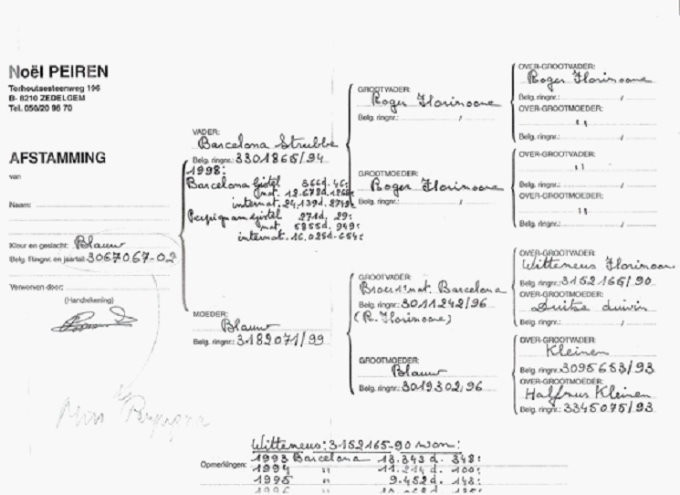 Noël PEIREN
Torhoutsesteenweg 196
B- 8210 ZEDELGEM
Tel. 050/20 96 70
AFSTAMMING
van
Naam:
Kleur en geslacht: Blauw
Belg. Ringnr. en jaartal: 3067067-02
Verworven door:
(Handtekening)
VADER:
Barcelona Strubbe
Belg. ringnr.: 3301865/94
1998:
Barcelona Gistel 366d. 46:
nat. 12.672d.
internat. 24,139d. 2749:
Perpignan Gistel 271d. 29:
nat. 5855d. 949:
internat. 16,025d. 654:
MOEDER:
Blauw
Belg. ringnr.: 3182071/99
GROOTVADER:
Roger Florizoone
Belg. ringnr.: /
GROOTMOEDER:
Roger Florizoone
Belg. ringnr.: /
GROOTVADER:
Barcelona
Belg. ringnr.: 3011242/96
(R. Florizoone)
GROOTMOEDER:
Blauw
Belg. ringnr.: 3019302/96
OVER-GROOTVADER:
Roger Florizoone
Belg. ringnr.: /
OVER-GROOTMOEDER:
"
Belg. ringnr.: /
OVER-GROOTVADER:
"
Belg. ringnr.: /
OVER-GROOTMOEDER:
"
Belg. ringnr.: /
OVER-GROOTVADER:
Witteneus Florizoone
Belg. ringnr.: 3152165/90
OVER-GROOTMOEDER:
Duitse duivin
Belg. ringnr.: /
OVER-GROOTVADER:
Kleinen
Belg. ringnr.: 3095653/93
OVER-GROOTMOEDER:
Halfzus Kleinen
Belg. ringnr.: 3345075/93
Witteneus: 3152165-90 won:
Opmerkingen: 1993 Barcelona 13.343 d. 348:
1994 " 11.214 d. 100:
1995 " 9.452 d. 148:
1996 "